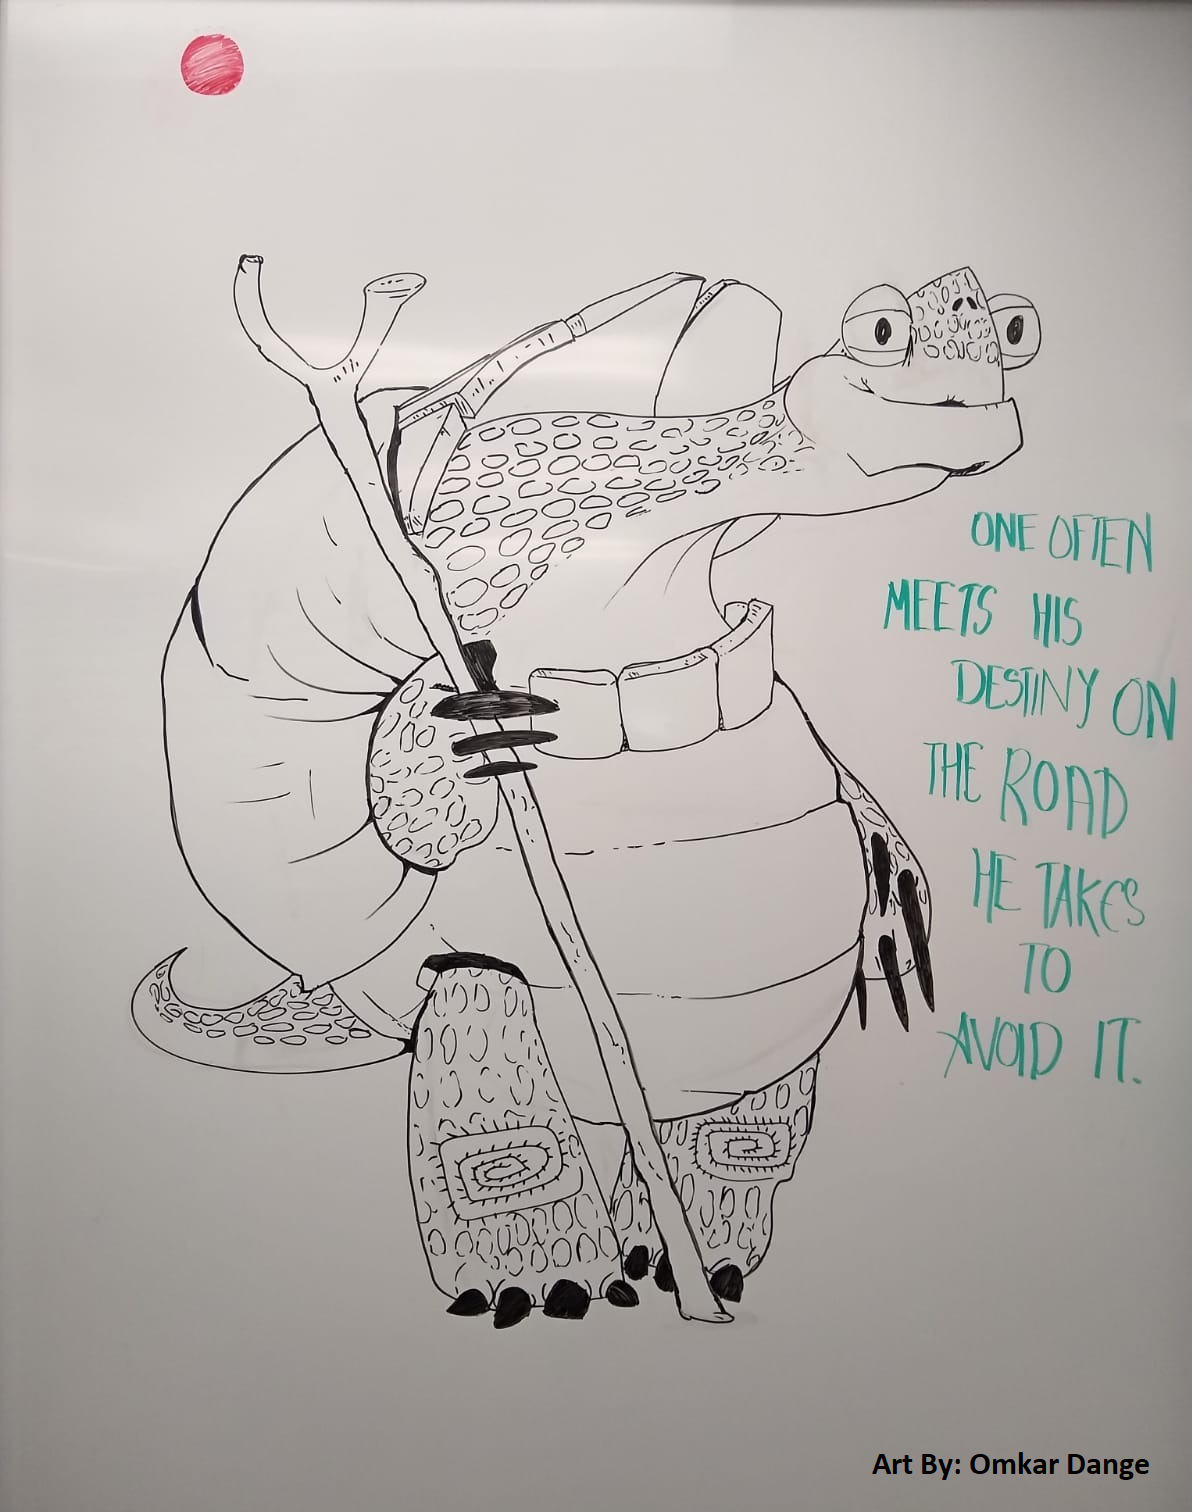 ONE OFTEN
MEETS HIS
DESTINY ON
THE ROAD
HE TAKES
TO
AVOID IT.
Art By: Omkar Dange